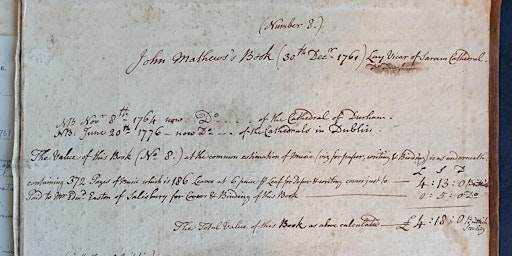 (Number 8.)
John Mathews's Book (30th Decr. 1761) Lay Vicar of Sarum Cathedral.
NB. Novr. 8th 1764 now Do. ... of the Cathedral of Durham.
NB. June 20th 1776 – now Do. ... of the Cathedrals in Dublin.
The Value of this Book (No. 8.) at the common estimation of Music (viz for paper, writing & Binding) is as underneath.
£ S D
containing 372 Pages of Music which is 186 Leaves at 6 pence pr Leaf for Paper & writing comes just to 4 : 13 : 0
Paid to Mr. Edwd. Easton of Salesbury for Covers & Binding of this Book 0 : 5 : 0 Do
The Total Value of this Book as above calculated £4 : 18 : 0